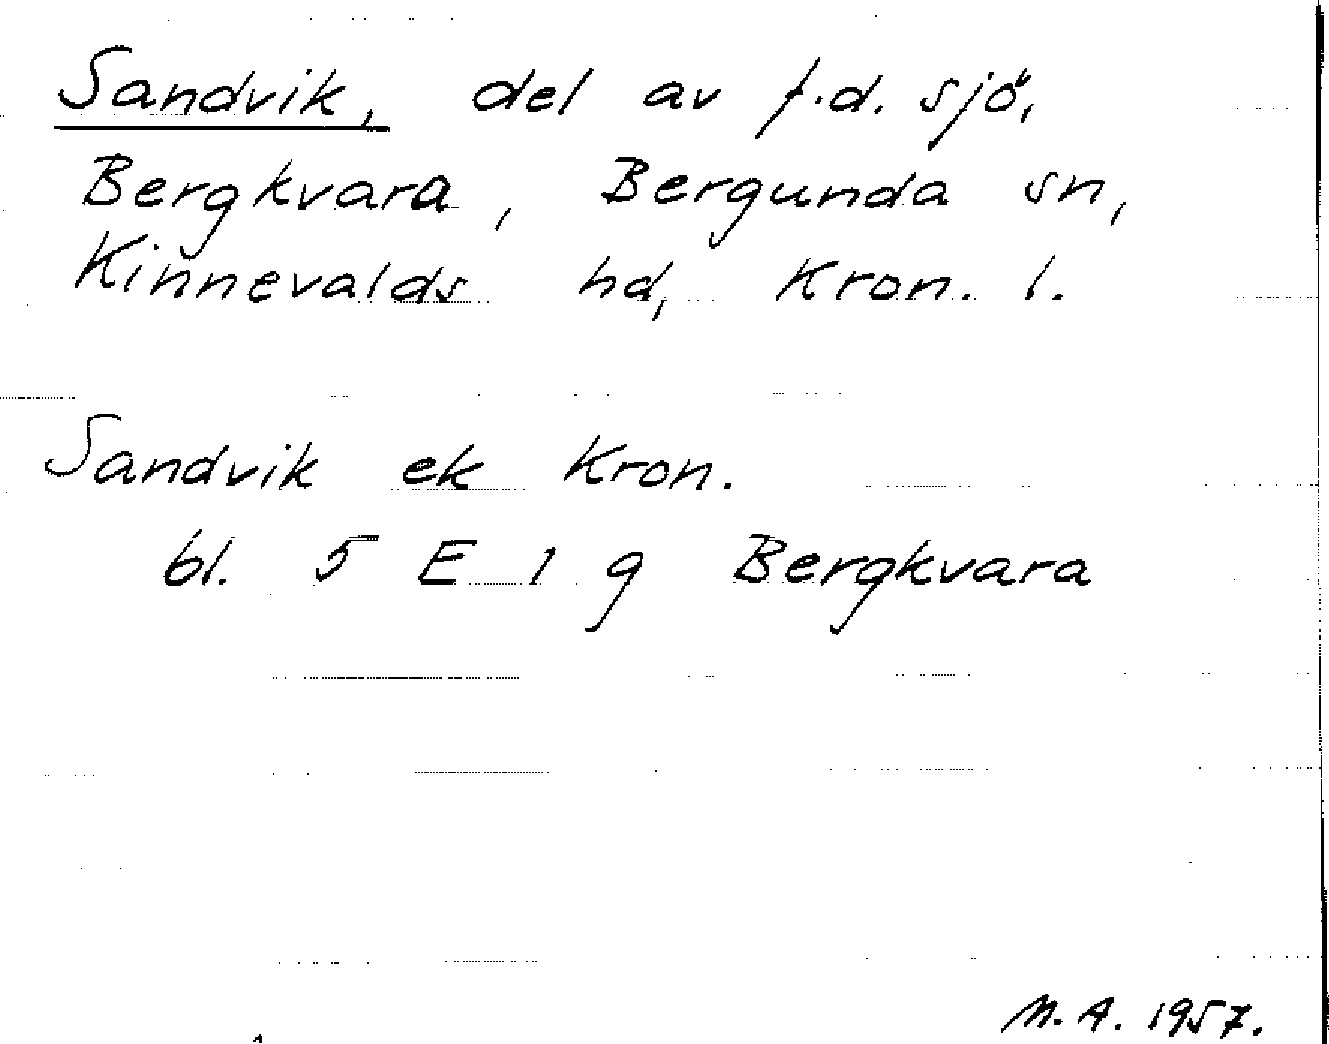 Sandvik, del av f.d. sjö,
Bergkvara, Bergunda sn,
Kinnevalds hd, Kron. l.
Sandvik ek Kron.
bl. 5 E 1 g Bergkvara
M.A. 1957.